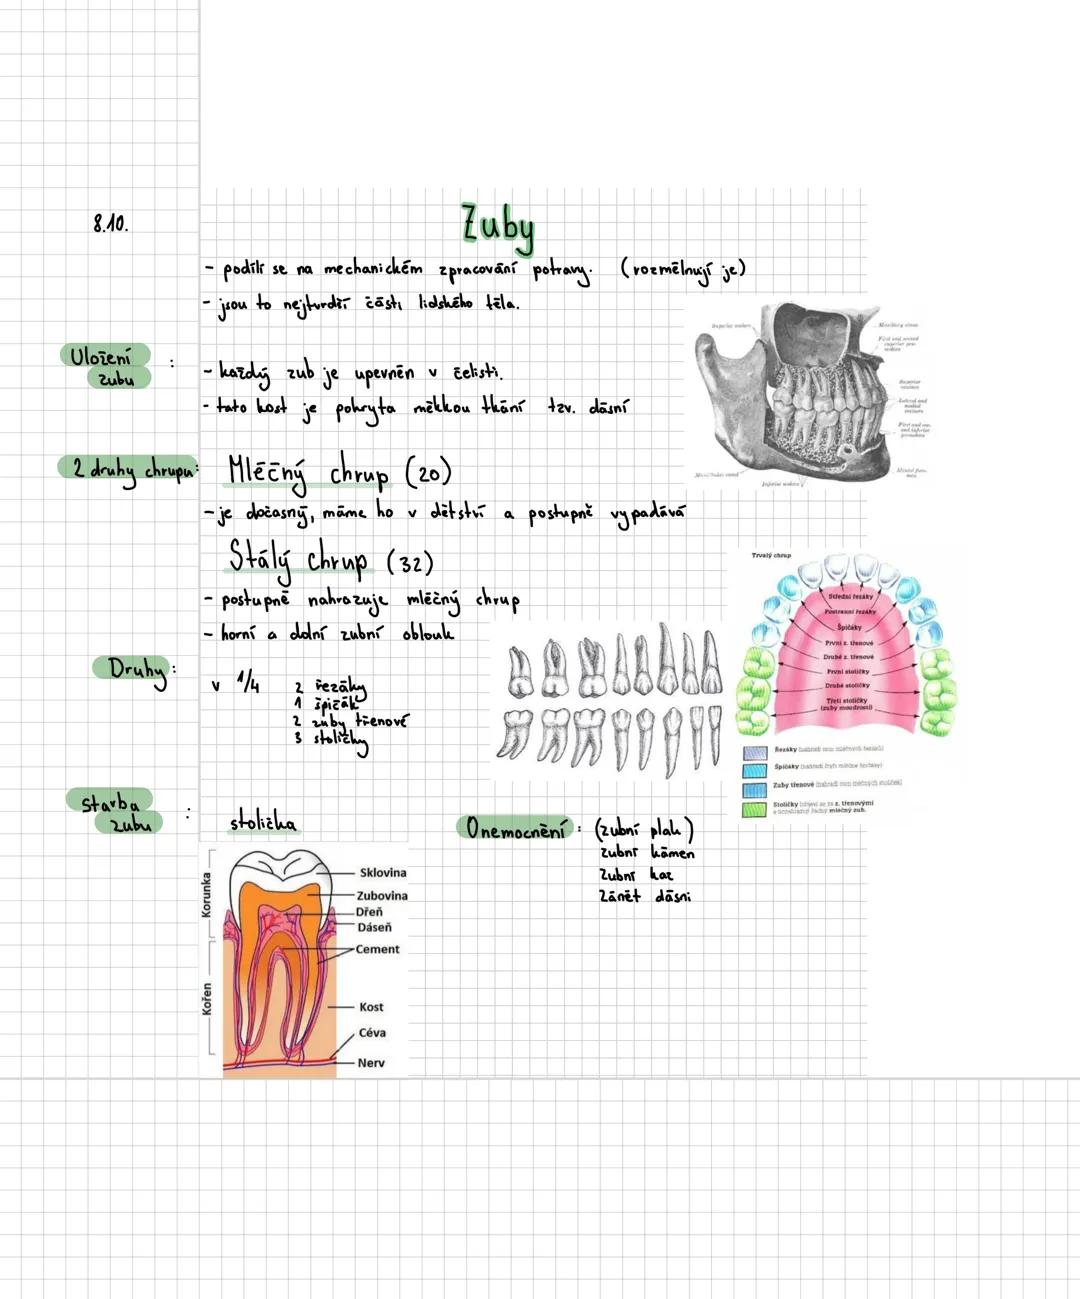 8.10.
Zuby
- podílí se na mechanickém zpracování potravy. (rozmělnují je)
- jsou to nejtvrdší části lidského těla.
Uložení zubu :
- každý zub je upevněn v čelisti.
- tato kost je pokryta měkkou tkání tzv. dásní
Maxillary sinus
Mandibular canal
2 druhy chrupu:
Mléčný chrup (20)
- je dočasný, máme ho v dětství a postupně vypadává
Stálý chrup (32)
- postupně nahrazuje mléčný chrup
- horní a dolní zubní oblouk
Druhy:
v 1/4
2 řezáky
1 špičák
2 zuby třenové
3 stoličky
Trvalý chrup
Střední řezáky
Postranní řezáky
Špičáky
První z. třenové
Druhé z. třenové
První stoličky
Druhé stoličky
Třetí stoličky
(zuby moudrosti)
Řezáky
Špičáky
Zuby třenové
Stoličky
z. třenovými
mléčný zub.
Starba zubu :
stolička
Korunka
Kořen
Sklovina
Zubovina
Dřeň
Dáseň
Cement
Kost
Céva
Nerv
Onemocnění: (zubní plak)
zubní kámen
Zubní kaz
Zánět dásni